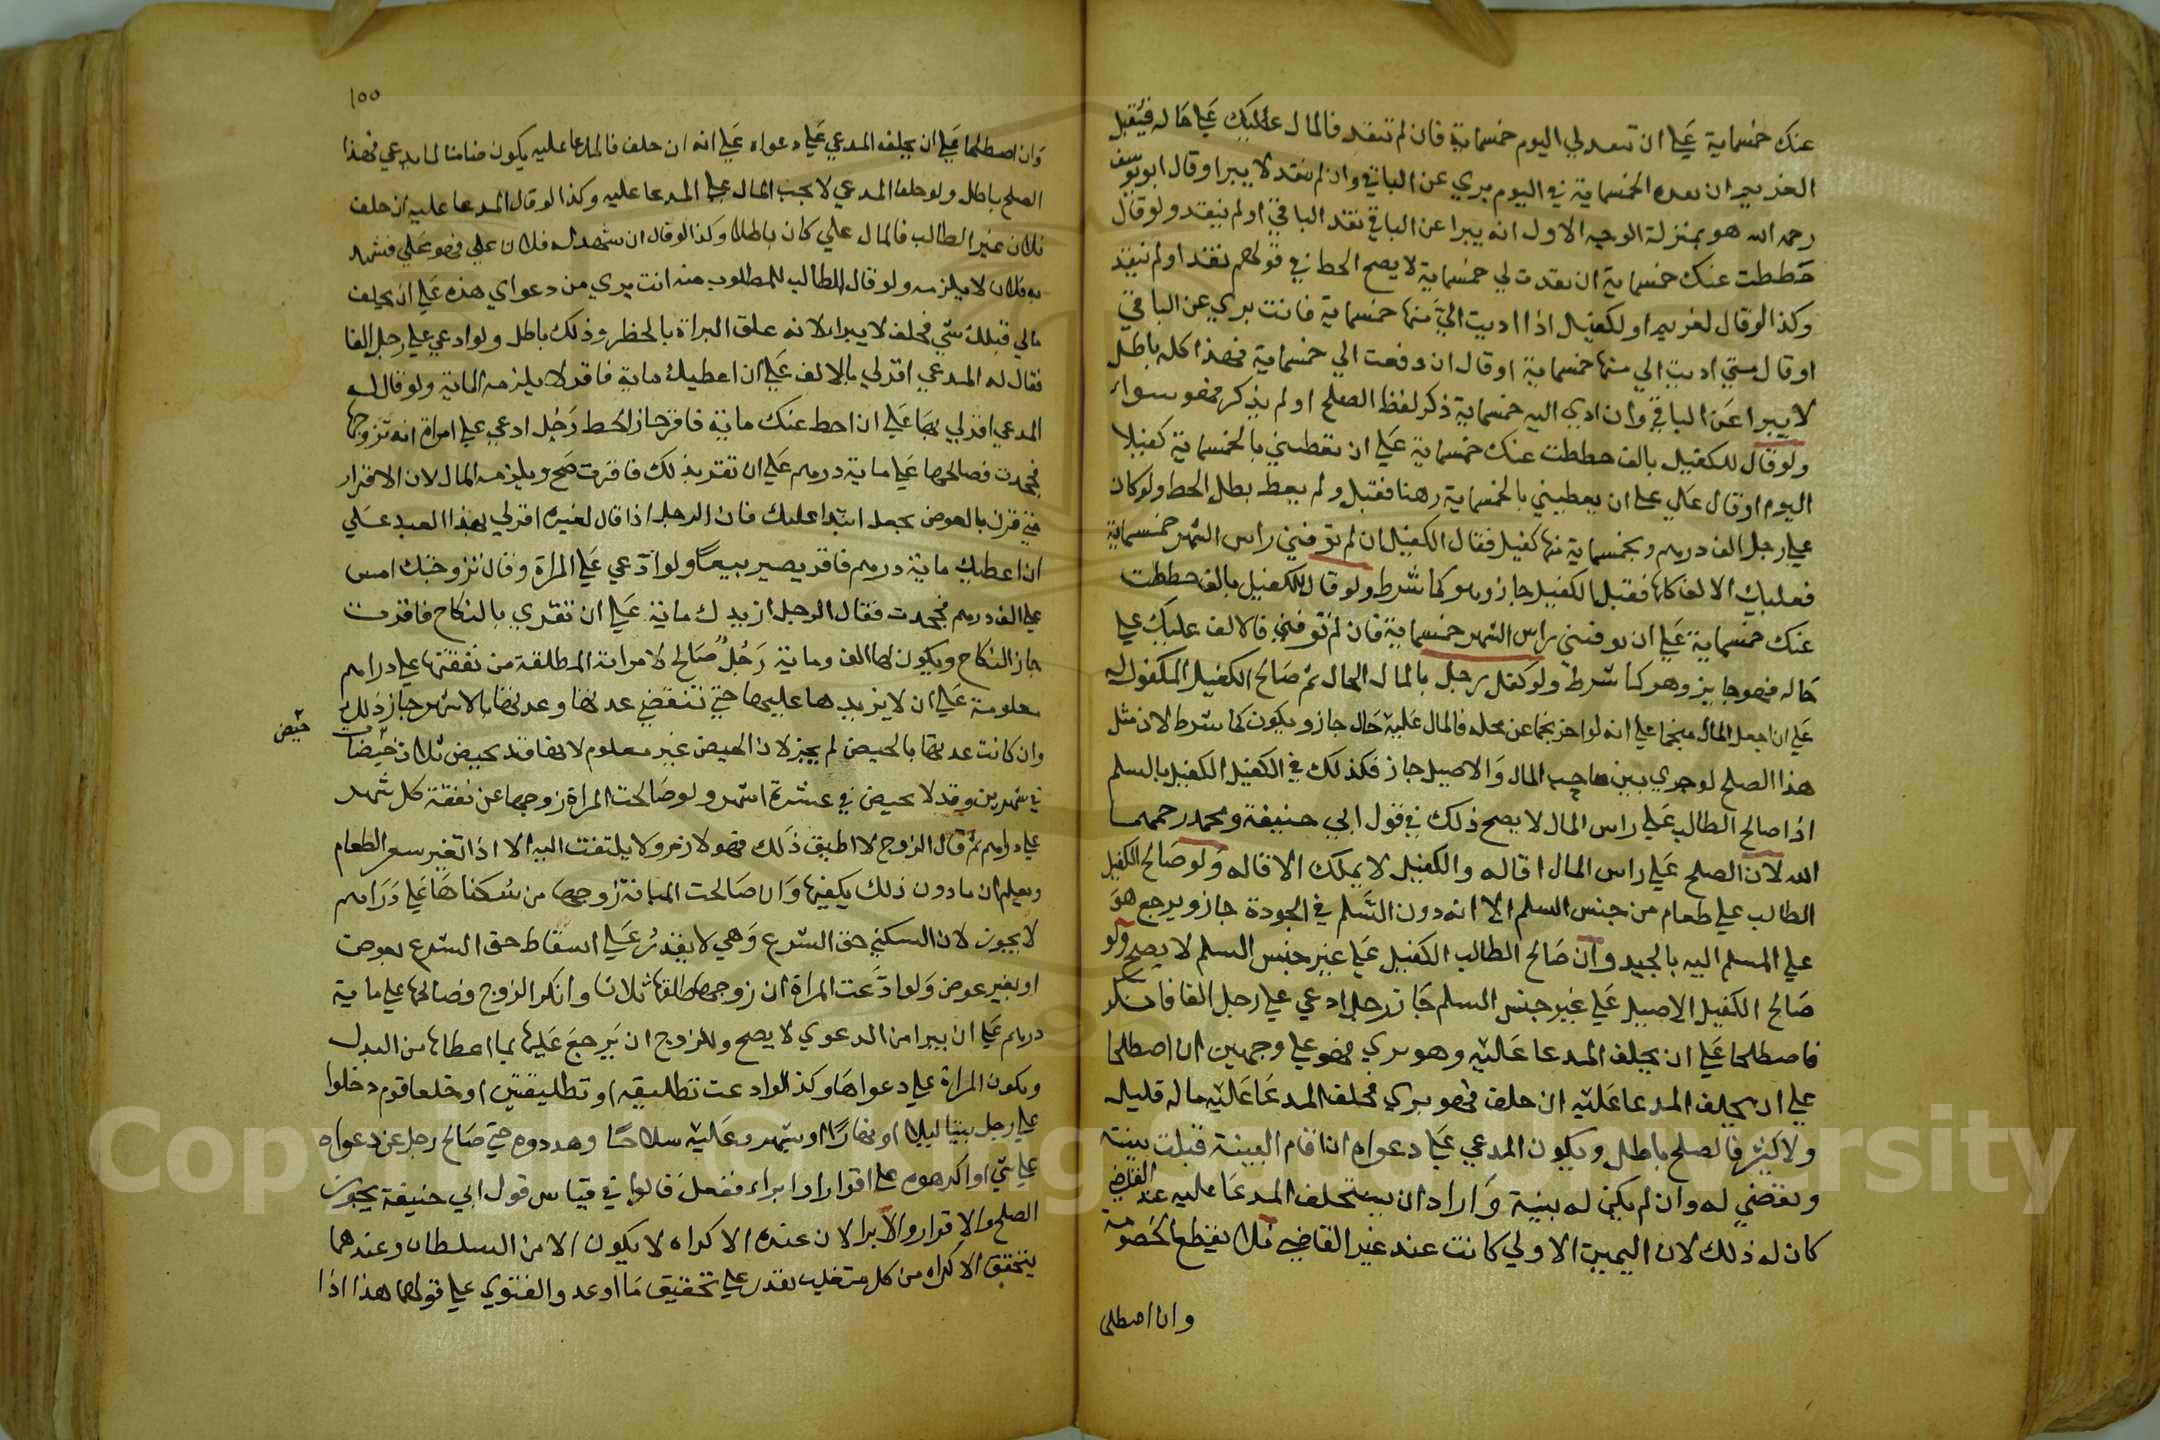 عنك خمسماية علي ان تنقد لي اليوم خمسماية فان لم تنقد فالمال عليك علي حاله فيقبل
الغريم ان نقده الخمسماية في اليوم بري عن الباقي وان لم ينقد لا يبرا وقال ابو يوسف
رحمه الله هو بمنزلة الوجه الاول انه يبرا عن الباقي نقد الباقي او لم ينقد ولو قال
حططت عنك خمسماية ان نقدت لي خمسماية لا يصح الحط في قولهم نقد او لم ينقد
وكذا لو قال لغريم او لكفيل اذا اديت الي منها خمسماية فانت بري عن الباقي
او قال متي اديت الي منها خمسماية او قال ان دفعت الي خمسماية فهذا كله باطل
لا يبرا عن الباقي وان ادي اليه خمسماية ذكر لفظ الصلح او لم يذكر فهو سواء
ولو قال للكفيل بالف حططت عنك خمسماية علي ان تعطيني بالخمسماية كفيلا
اليوم او قال علي ان يعطيني بالخمسماية رهنا فقبل ولم يعط بطل الحط ولو كان
علي رجل الف درهم وبخمسماية منها كفيل فقال الكفيل ان لم توفني راس الشهر خمسماية
فعليك الالف كلها فقبل الكفيل جاز وهو كما شرط ولو قال للكفيل بالف حططت
عنك خمسماية علي ان توفني راس الشهر خمسماية فان لم توفني فالالف عليك علي
حاله فهو جايز وهو كما شرط ولو كفل رجل بالمال الحال ثم صالح الكفيل المكفول له
علي ان اجعل المال منجما علي انه لو اخر نجما عن محله فالمال عليه حال جاز ويكون كما شرط لان مثل
هذا الصلح لو جري بين صاحب المال والاصيل جاز فكذلك في الكفيل الكفيل بالسلم
اذا صالح الطالب علي راس المال لا يصح ذلك في قول ابي حنيفة ومحمد رحمهما
الله لان الصلح علي راس المال اقاله والكفيل لا يملك الاقاله ولو صالح الكفيل
الطالب علي طعام من جنس السلم الا انه دون السلم في الجودة جاز ويرجع هو
علي المسلم اليه بالجيد وان صالح الطالب الكفيل علي غير جنس السلم لا يصح ولو
صالح الكفيل الاصيل علي غير جنس السلم جاز رجل ادعي علي رجل الفا فانكر
فاصطلحا علي ان يحلف المدعا عليه وهو بري فهو علي وجهين ان اصطلحا
علي ان يحلف المدعا عليه ان حلف فهو بري فحلف المدعا عليه ماله قليله
ولا كثير فالصلح باطل ويكون المدعي علي دعواه ان اقام البينة قبلت بينته
ويقضي له وان لم يكن له بينة واراد ان يستحلف المدعا عليه عند القاضي
كان له ذلك لان اليمين الاولي كانت عند غير القاضي فلا يقطع الخصومة
وان اصطلحا
١٥٥
وان اصطلحا علي ان يحلف المدعي علي دعواه علي انه ان حلف فالمدعا عليه يكون ضامنا لما يدعي فهذا
الصلح باطل ولو حلف المدعي لا يجب المال علي المدعا عليه وكذا لو قال المدعا عليه ان حلف
فلان غير الطالب فالمال علي كان باطلا وكذا لو قال ان شهد له فلان علي فهو علي فشهد
به فلان لا يلزمه ولو قال الطالب للمطلوب منه انت بري من دعواي هذه علي ان يحلف
مالي قبلك شي فحلف لا يبرا لانه علق البراة بالخطر وذلك باطل ولو ادعي علي رجل الفا
فقال له المدعي اقر لي بالالف علي ان اعطيك ماية فاقر لا يلزمه الماية ولو قال له
المدعي اقر لي بها علي ان احط عنك ماية فاقر جاز الحط رجل ادعي علي امراة انه تزوجها
فجحدت فصالحها علي ماية درهم علي ان تقر بذلك فاقرت صح ويلزمه المال لان الاقرار
متي قرن بالعوض يجعل ابتدا عليك فان الرجل اذا قال لغيره اقر لي بهذا العبد علي
ان اعطيك ماية درهم فاقر يصير بيعا ولو ادعي علي المراة وقال تزوجتك امس
علي الف درهم فجحدت فقال الرجل ازيدك ماية علي ان تقري بالنكاح فاقرت
جاز النكاح ويكون لها الف وماية رجل صالح لامراته المطلقة من نفقتها علي دراهم
معلومة علي ان لا يزيدها عليها حتي تنقضي عدتها وعدتها بالاشهر جاز ذلك
وان كانت عدتها بالحيض لم يجز لان الحيض غير معلوم لانها قد تحيض ثلاث حيضات
حيض
في شهرين وقد لا تحيض في عشرة اشهر ولو صالحت المراة زوجها عن نفقة كل شهر
علي دراهم ثم قال الزوج لا اطيق ذلك فهو لازم ولا يلتفت اليه الا اذا تغير سعر الطعام
ويعلم ان ما دون ذلك يكفيها وان صالحت المبانة زوجها من سكناها علي دراهم
لا يجوز لان السكني حق الشرع وهي لا يقدر علي اسقاط حق الشرع بعوض
او بغير عوض ولو ادعت المراة ان زوجها طلقها ثلاثا وانكر الزوج فصالحها علي ماية
درهم علي ان يبرا من الدعوي لا يصح وللزوج ان يرجع عليها بما اعطاها من البدل
ويكون المراة علي دعواها وكذا لو ادعت تطليقة او تطليقتين او خلعا قوم دخلوا
علي رجل بيتا ليلا او نهارا او شهروا عليه سلاحا وهددوه حتي صالح رجل عن دعواه
علي شي او اكرهوه علي اقرار او ابراء ففعل قالوا في قياس قول ابي حنيفة يجوز
الصلح والاقرار والابرا لان عنده الاكراه لا يكون الا من السلطان وعندهما
يتحقق الاكراه من كل متغلب يقدر علي تحقيق ما اوعد والفتوي علي قولهما هذا اذا
Copyright © King Saud University